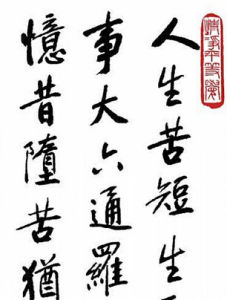 人生苦短生
事大六通羅
憶昔墮苦猶